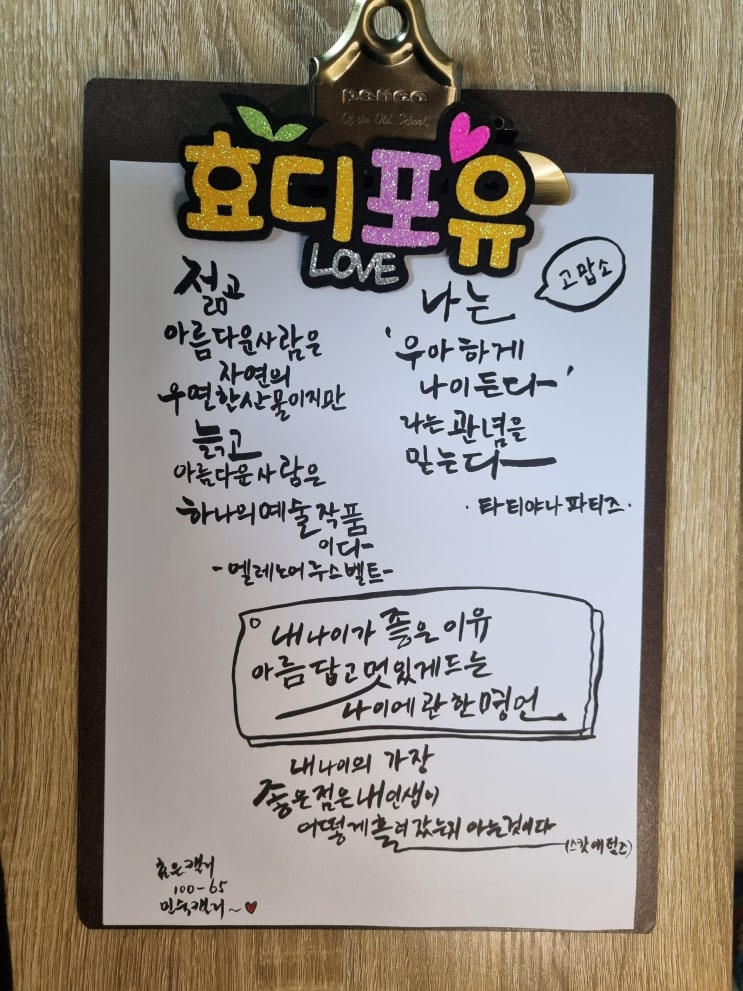 Of the Old School
효디포유
LOVE
젊고
아름다운사람은
자연의
우연한산물이지만
늙고
아름다운사람은
하나의예술작품
이다
-엘레노어루스벨트-
고맙소
나는
'우아하게
나이든다'
라는관념을
믿는다
·타티야나파티즈·
내나이가 좋은이유
아름답고멋있게드는
나이에관한명언
내나이의 가장
좋은점은내인생이
어떻게흘러갔는지 아는것이다
100-65